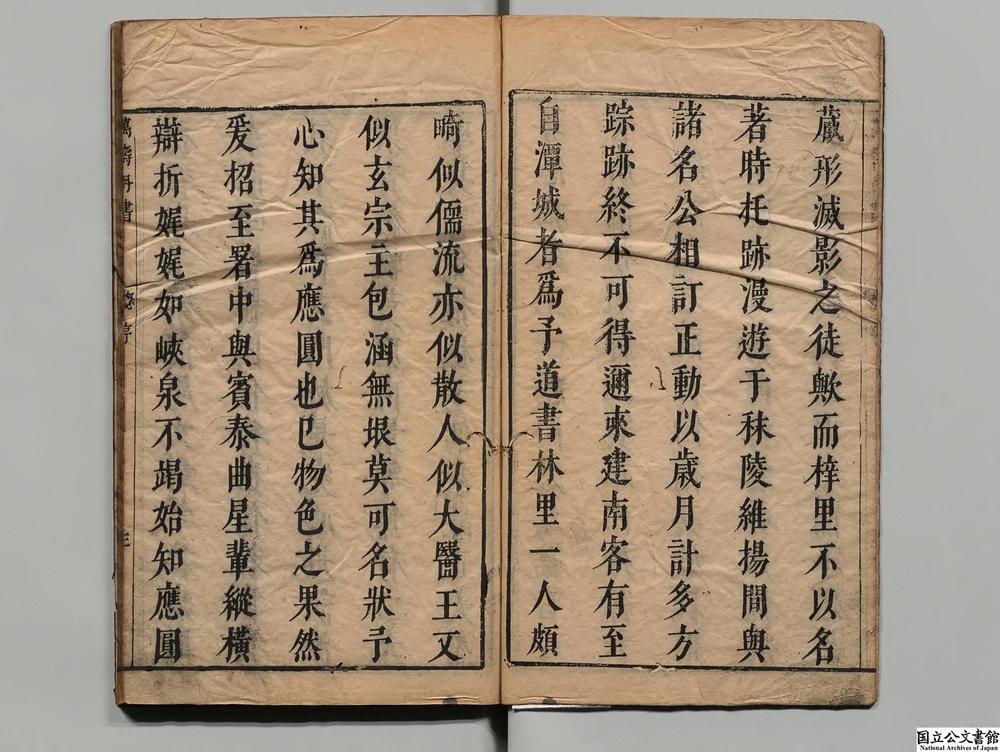 藏形滅影之徒歟而梓里不以名
著時托跡漫遊于秣陵維揚間與
諸名公相訂正動以歲月計多方
踪跡終不可得邇來建南客有至
自潭城者爲予道書林里一人頗
畸似儒流亦似散人似大醫王又
似玄宗主包涵無垠莫可名狀予
心知其爲應圓也已物色之果然
爰招至署中與賓泰曲星輩縱橫
辯折娓娓如峽泉不竭始知應圓
萬壽丹書
三
国立公文書館
National Archives of Japan